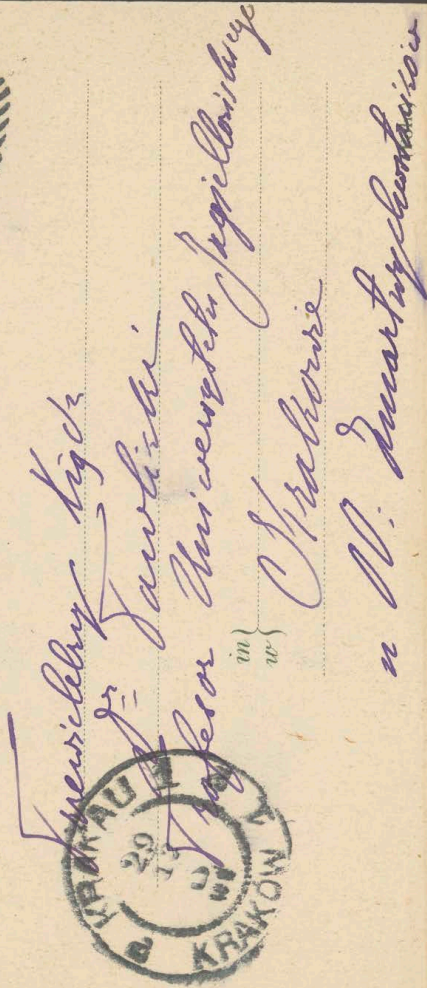 Przewielebny Ksiądz
Dr Pawlicki
Profesor Uniwersytetu Jagiellońskiego
in
w
Krakowie
u W. Zmartwychwstańców
KRAKAU 1
29
KRAKÓW 1